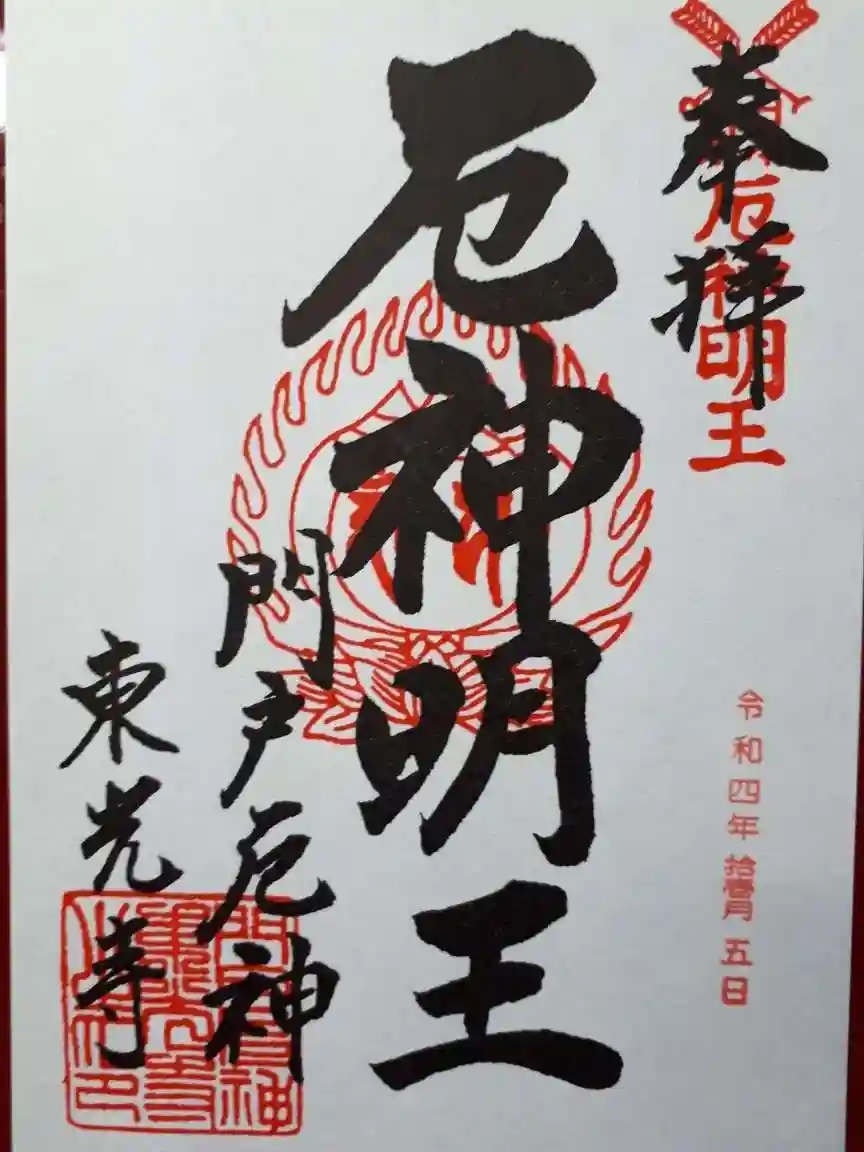 奉拝
厄神明王
令和四年拾壹月五日
厄神明王
門戸厄神
東光寺